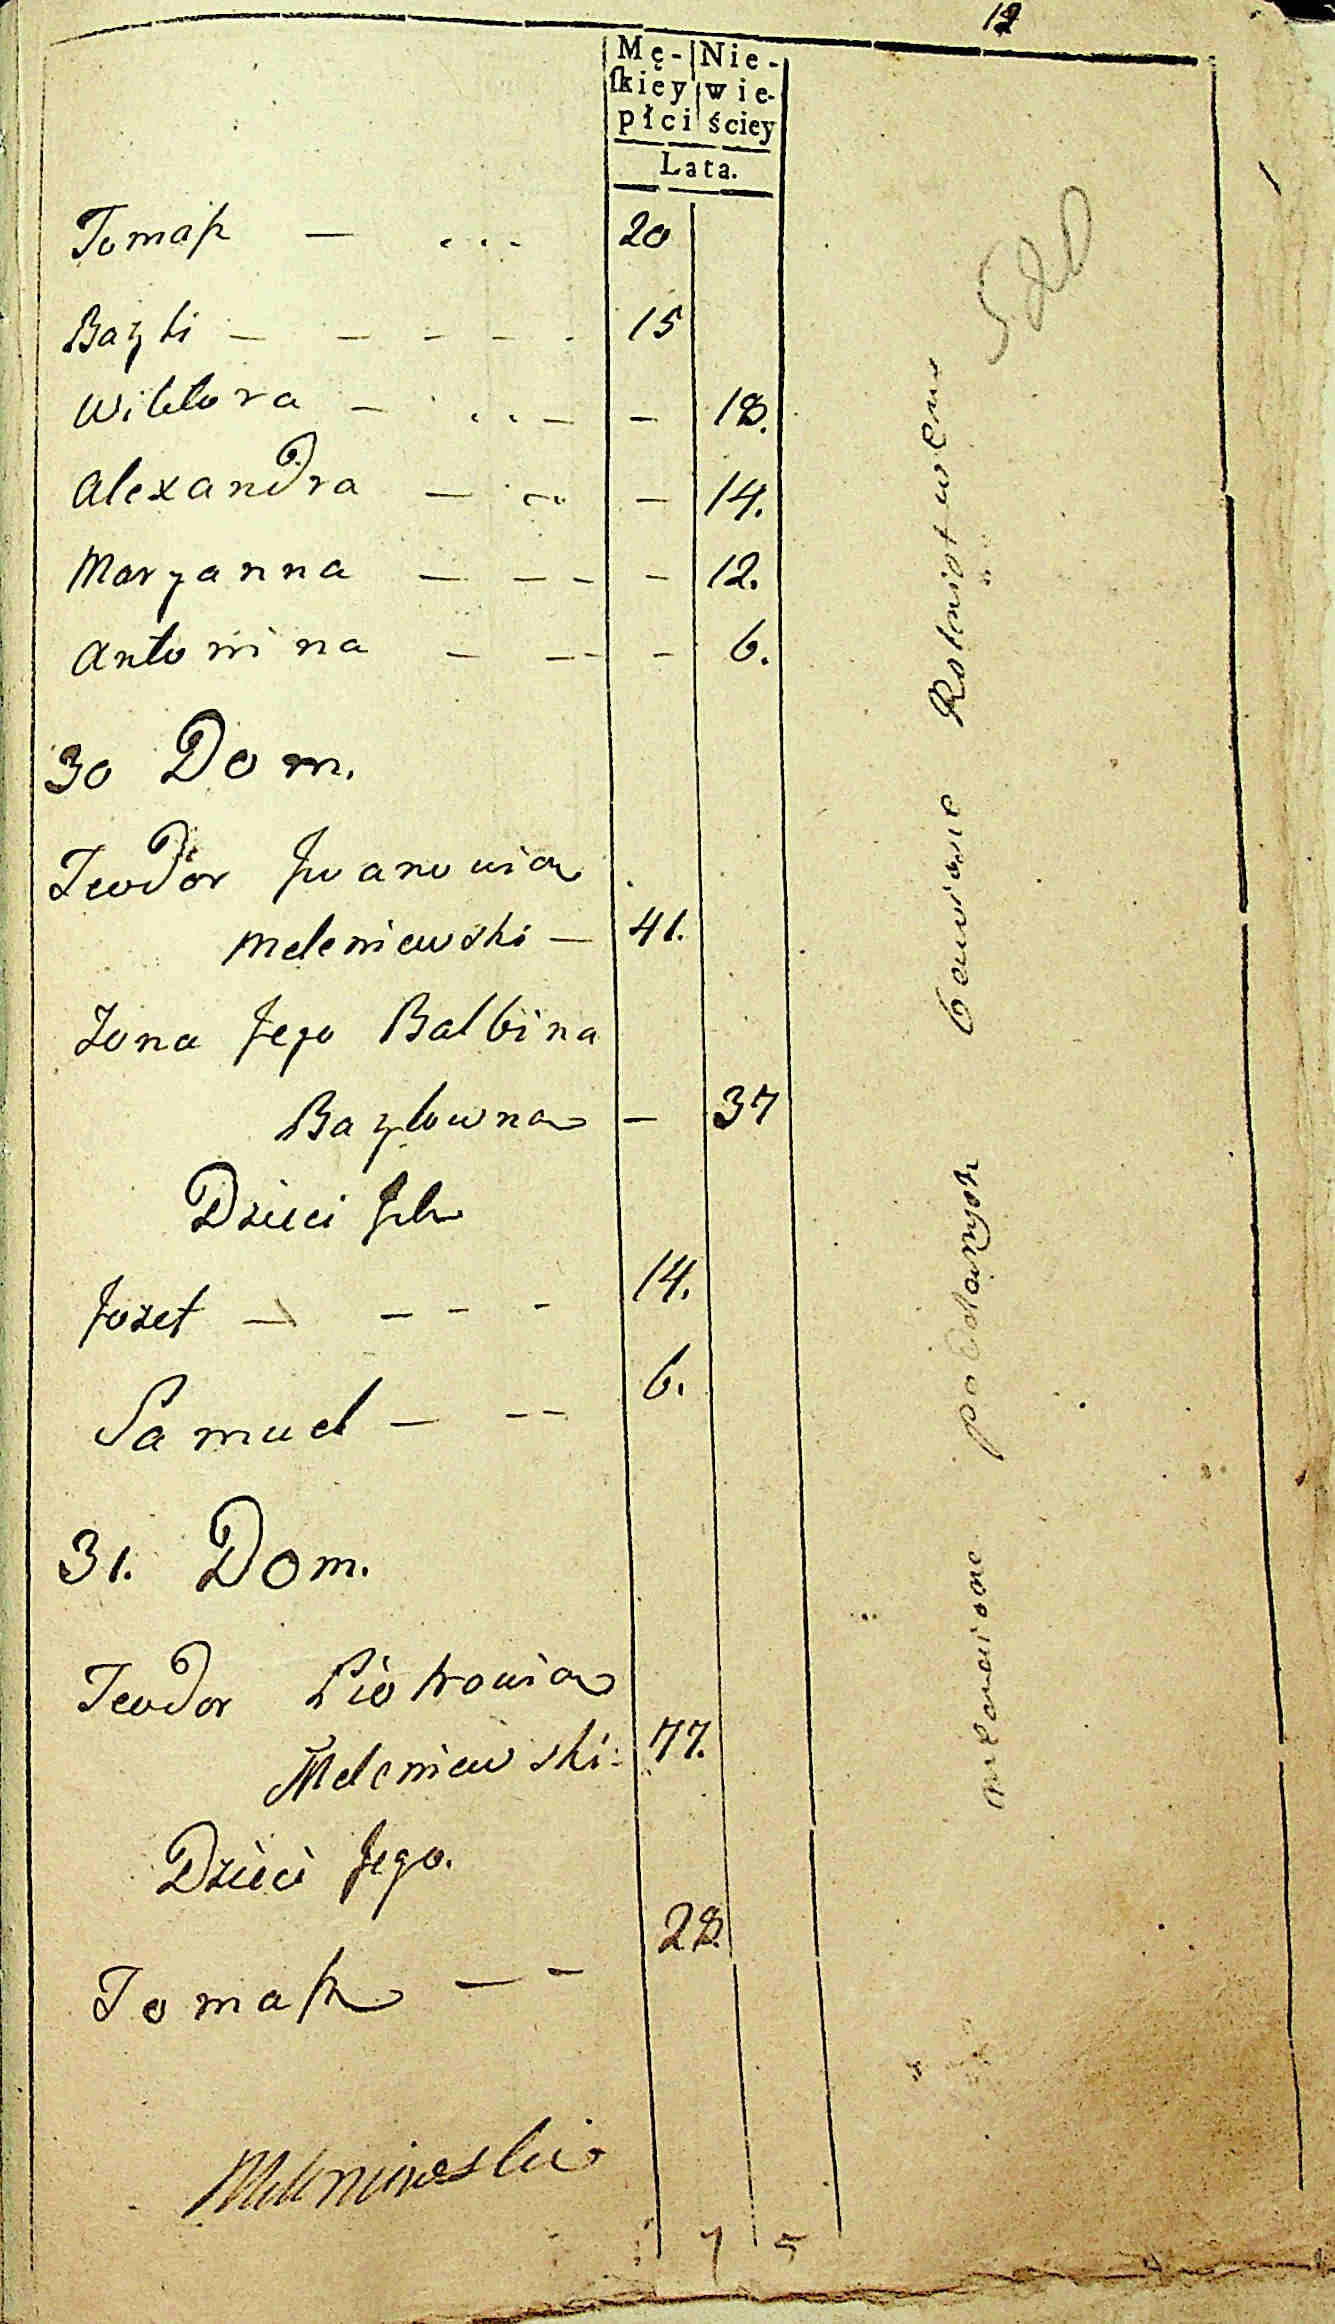 12
Mę- Nie-
ſkiey wie-
płci ściey
Lata.
Tomaſz — ... 20
Bazyli — — — — 15
Wiktora — ... — — 18.
Alexandra — — 14.
Maryanna — — — — 12.
Antonina — — — — 6.
30 Dom.
Teodor Jwanowicz
Meleniewski — 41.
Zona Jego Balbina
Bazylowna — 37
Dzieci Jch
Jozef — — — — 14.
Samuel — — — 6.
31. Dom.
Teodor Piotrowicz
Meleniewski 77.
Dzieci Jego.
Tomaſz — — 28.
Meleniewski
7 5
520